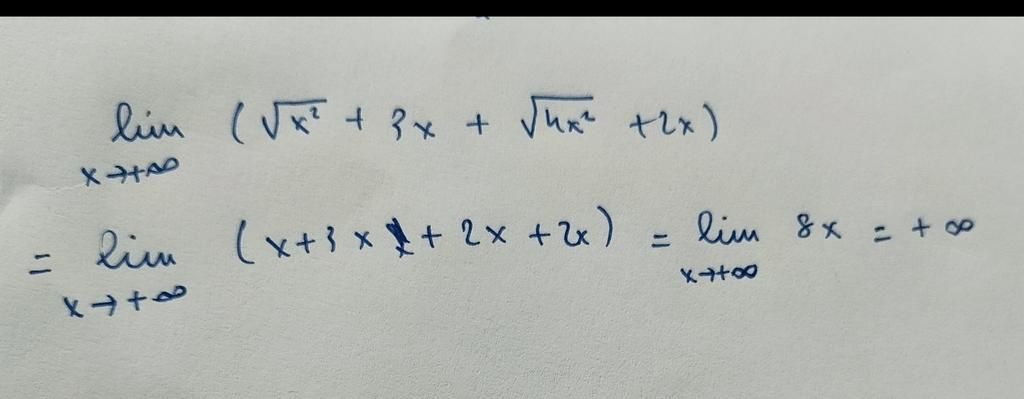 lim (√x² + 3x + √4x² + 2x)
x→+∞
= lim (x+3x + 2x + 2x) = lim 8x = +∞
x→+∞ x→+∞